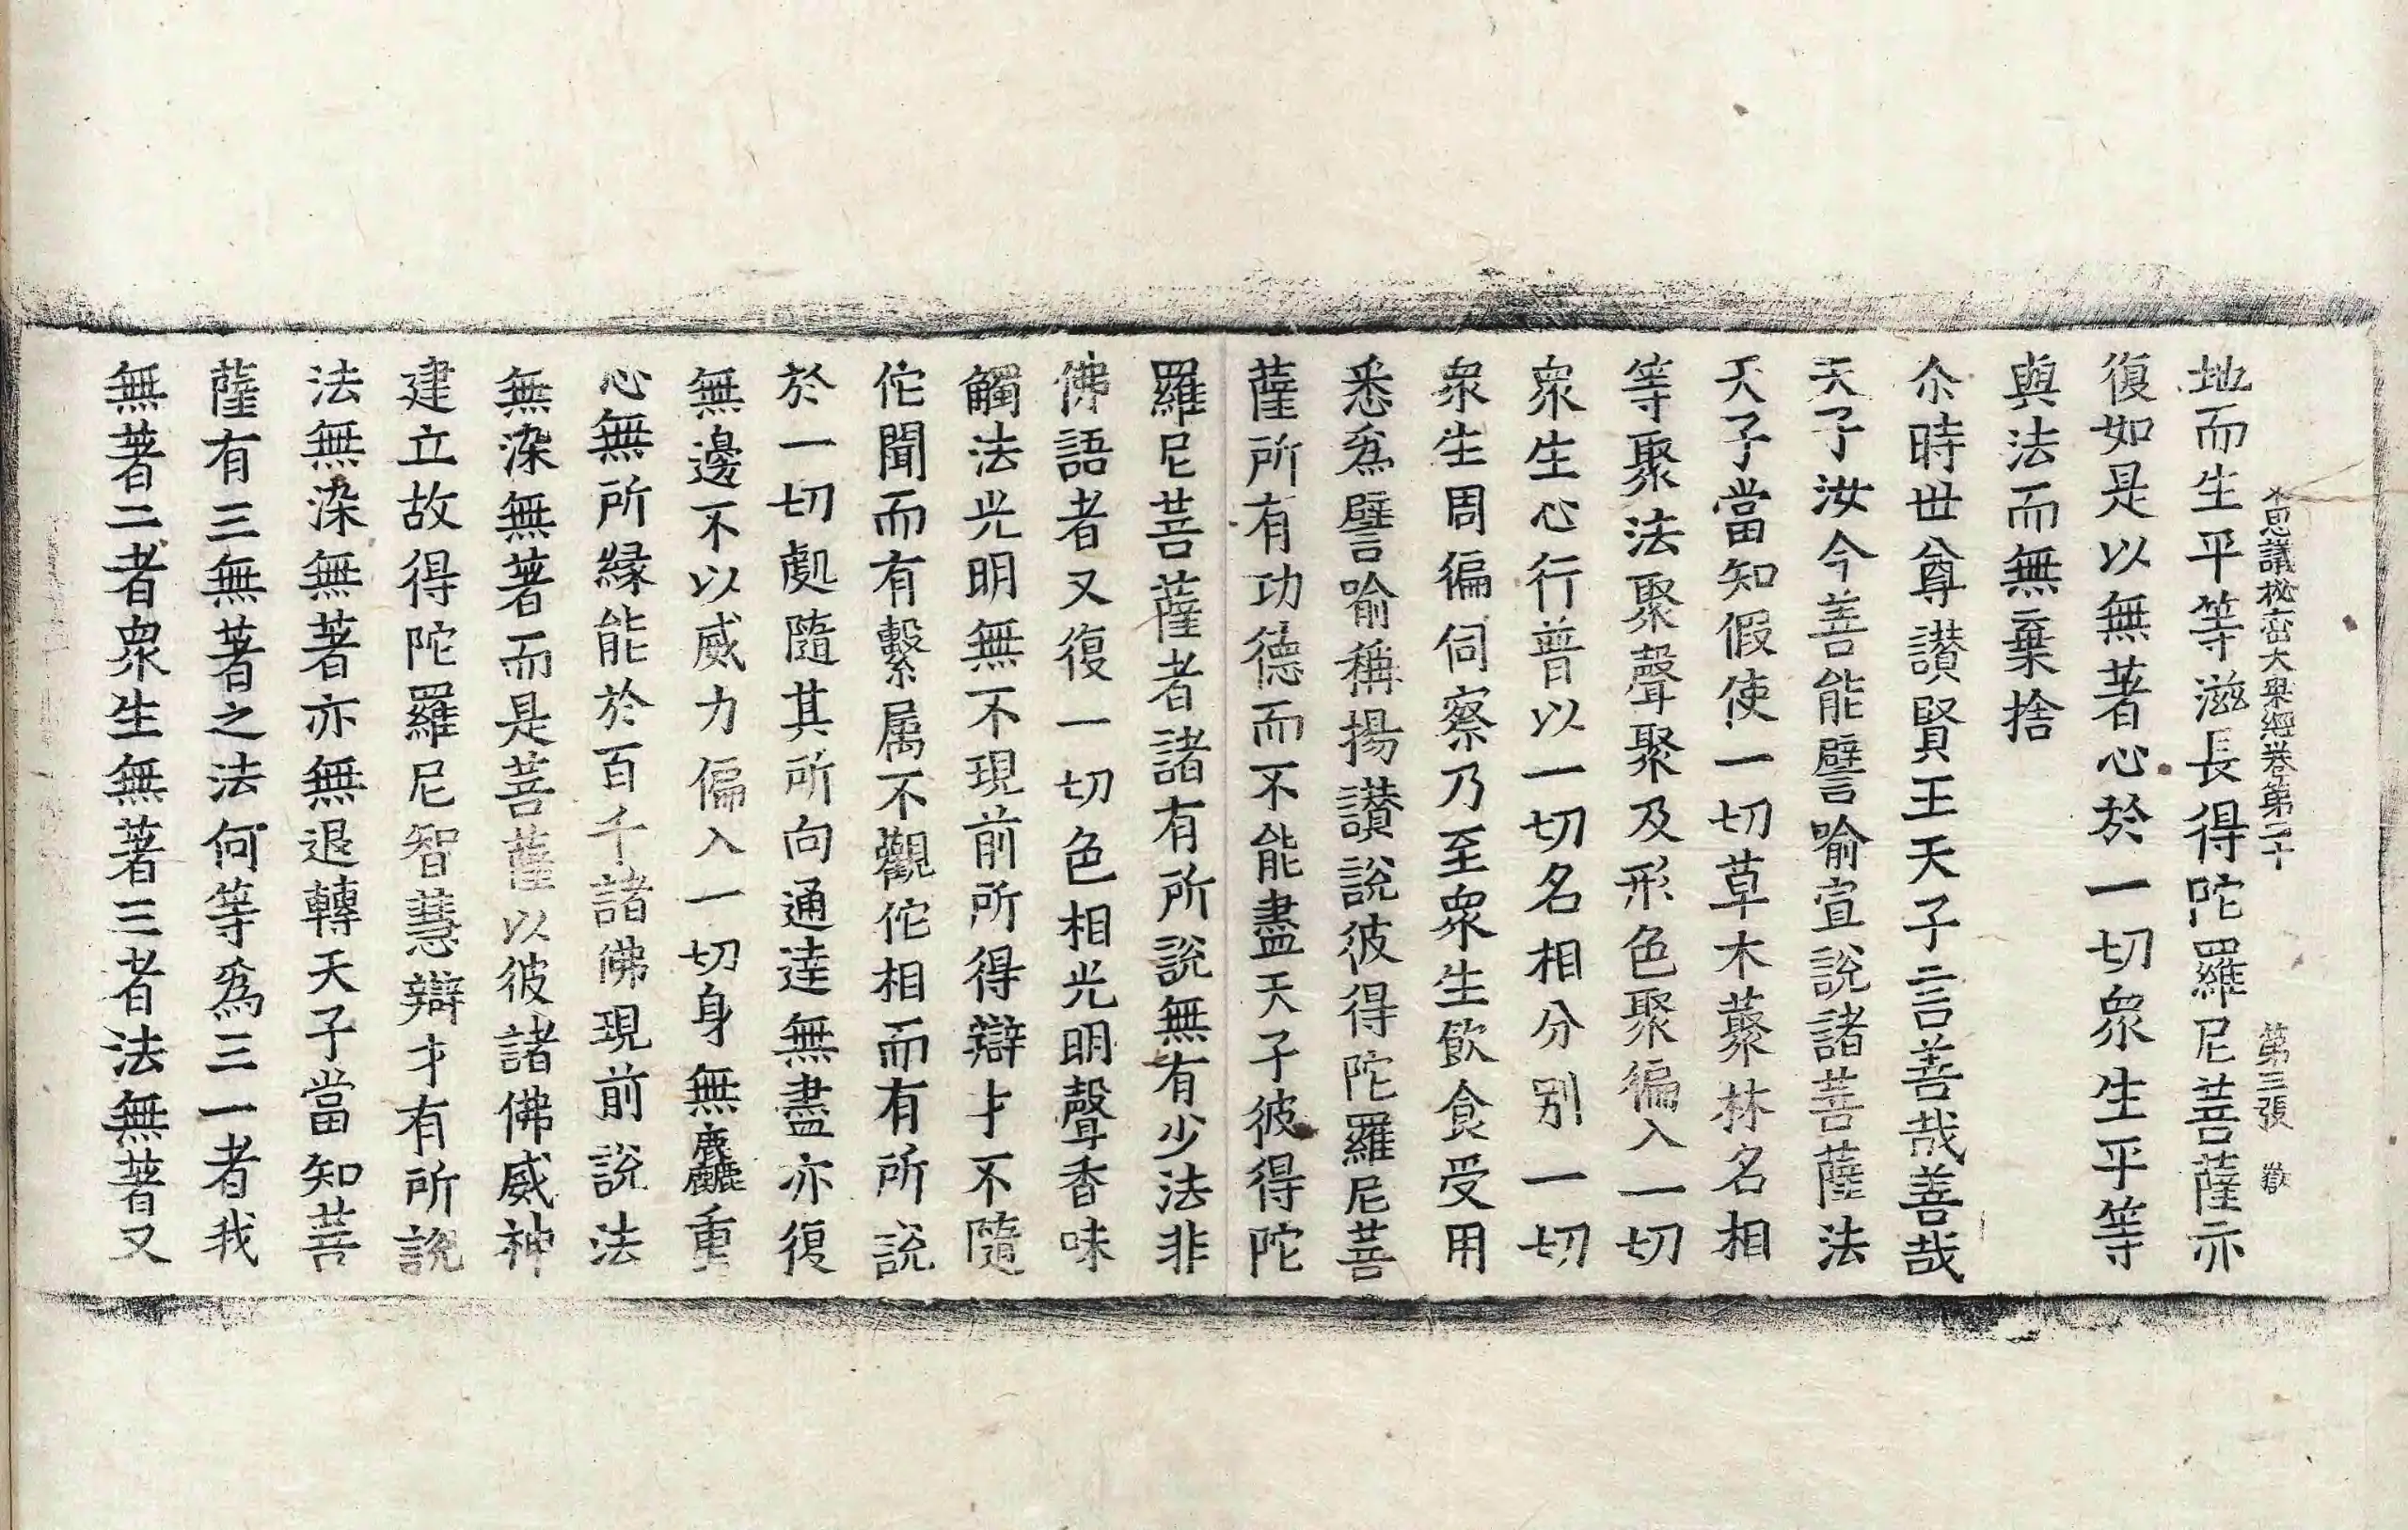 不思議秘密大乘經卷第二十 第三張 㱃
地而生平等滋長得陀羅尼菩薩亦
復如是以無著心於一切衆生平等
與法而無棄捨
尒時世尊讃賢王天子言善哉善哉
天子汝今善能譬喻宣說諸菩薩法
天子當知假使一切草木藂林名相
等聚法聚聲聚及形色聚徧入一切
衆生心行普以一切名相分別一切
衆生周徧伺察乃至衆生飲食受用
悉爲譬喻稱揚讃說彼得陀羅尼菩
薩所有功德而不能盡天子彼得陀
羅尼菩薩者諸有所說無有少法非
佛語者又復一切色相光明聲香味
觸法光明無不現前所得辯才不隨
佗聞而有繫属不觀佗相而有所說
於一切處隨其所向通達無盡亦復
無邊不以威力徧入一切身無麤重
心無所緣能於百千諸佛現前說法
無染無著而是菩薩以彼諸佛威神
建立故得陀羅尼智慧辯才有所說
法無染無著亦無退轉天子當知菩
薩有三無著之法何等爲三一者我
無著二者衆生無著三者法無著又